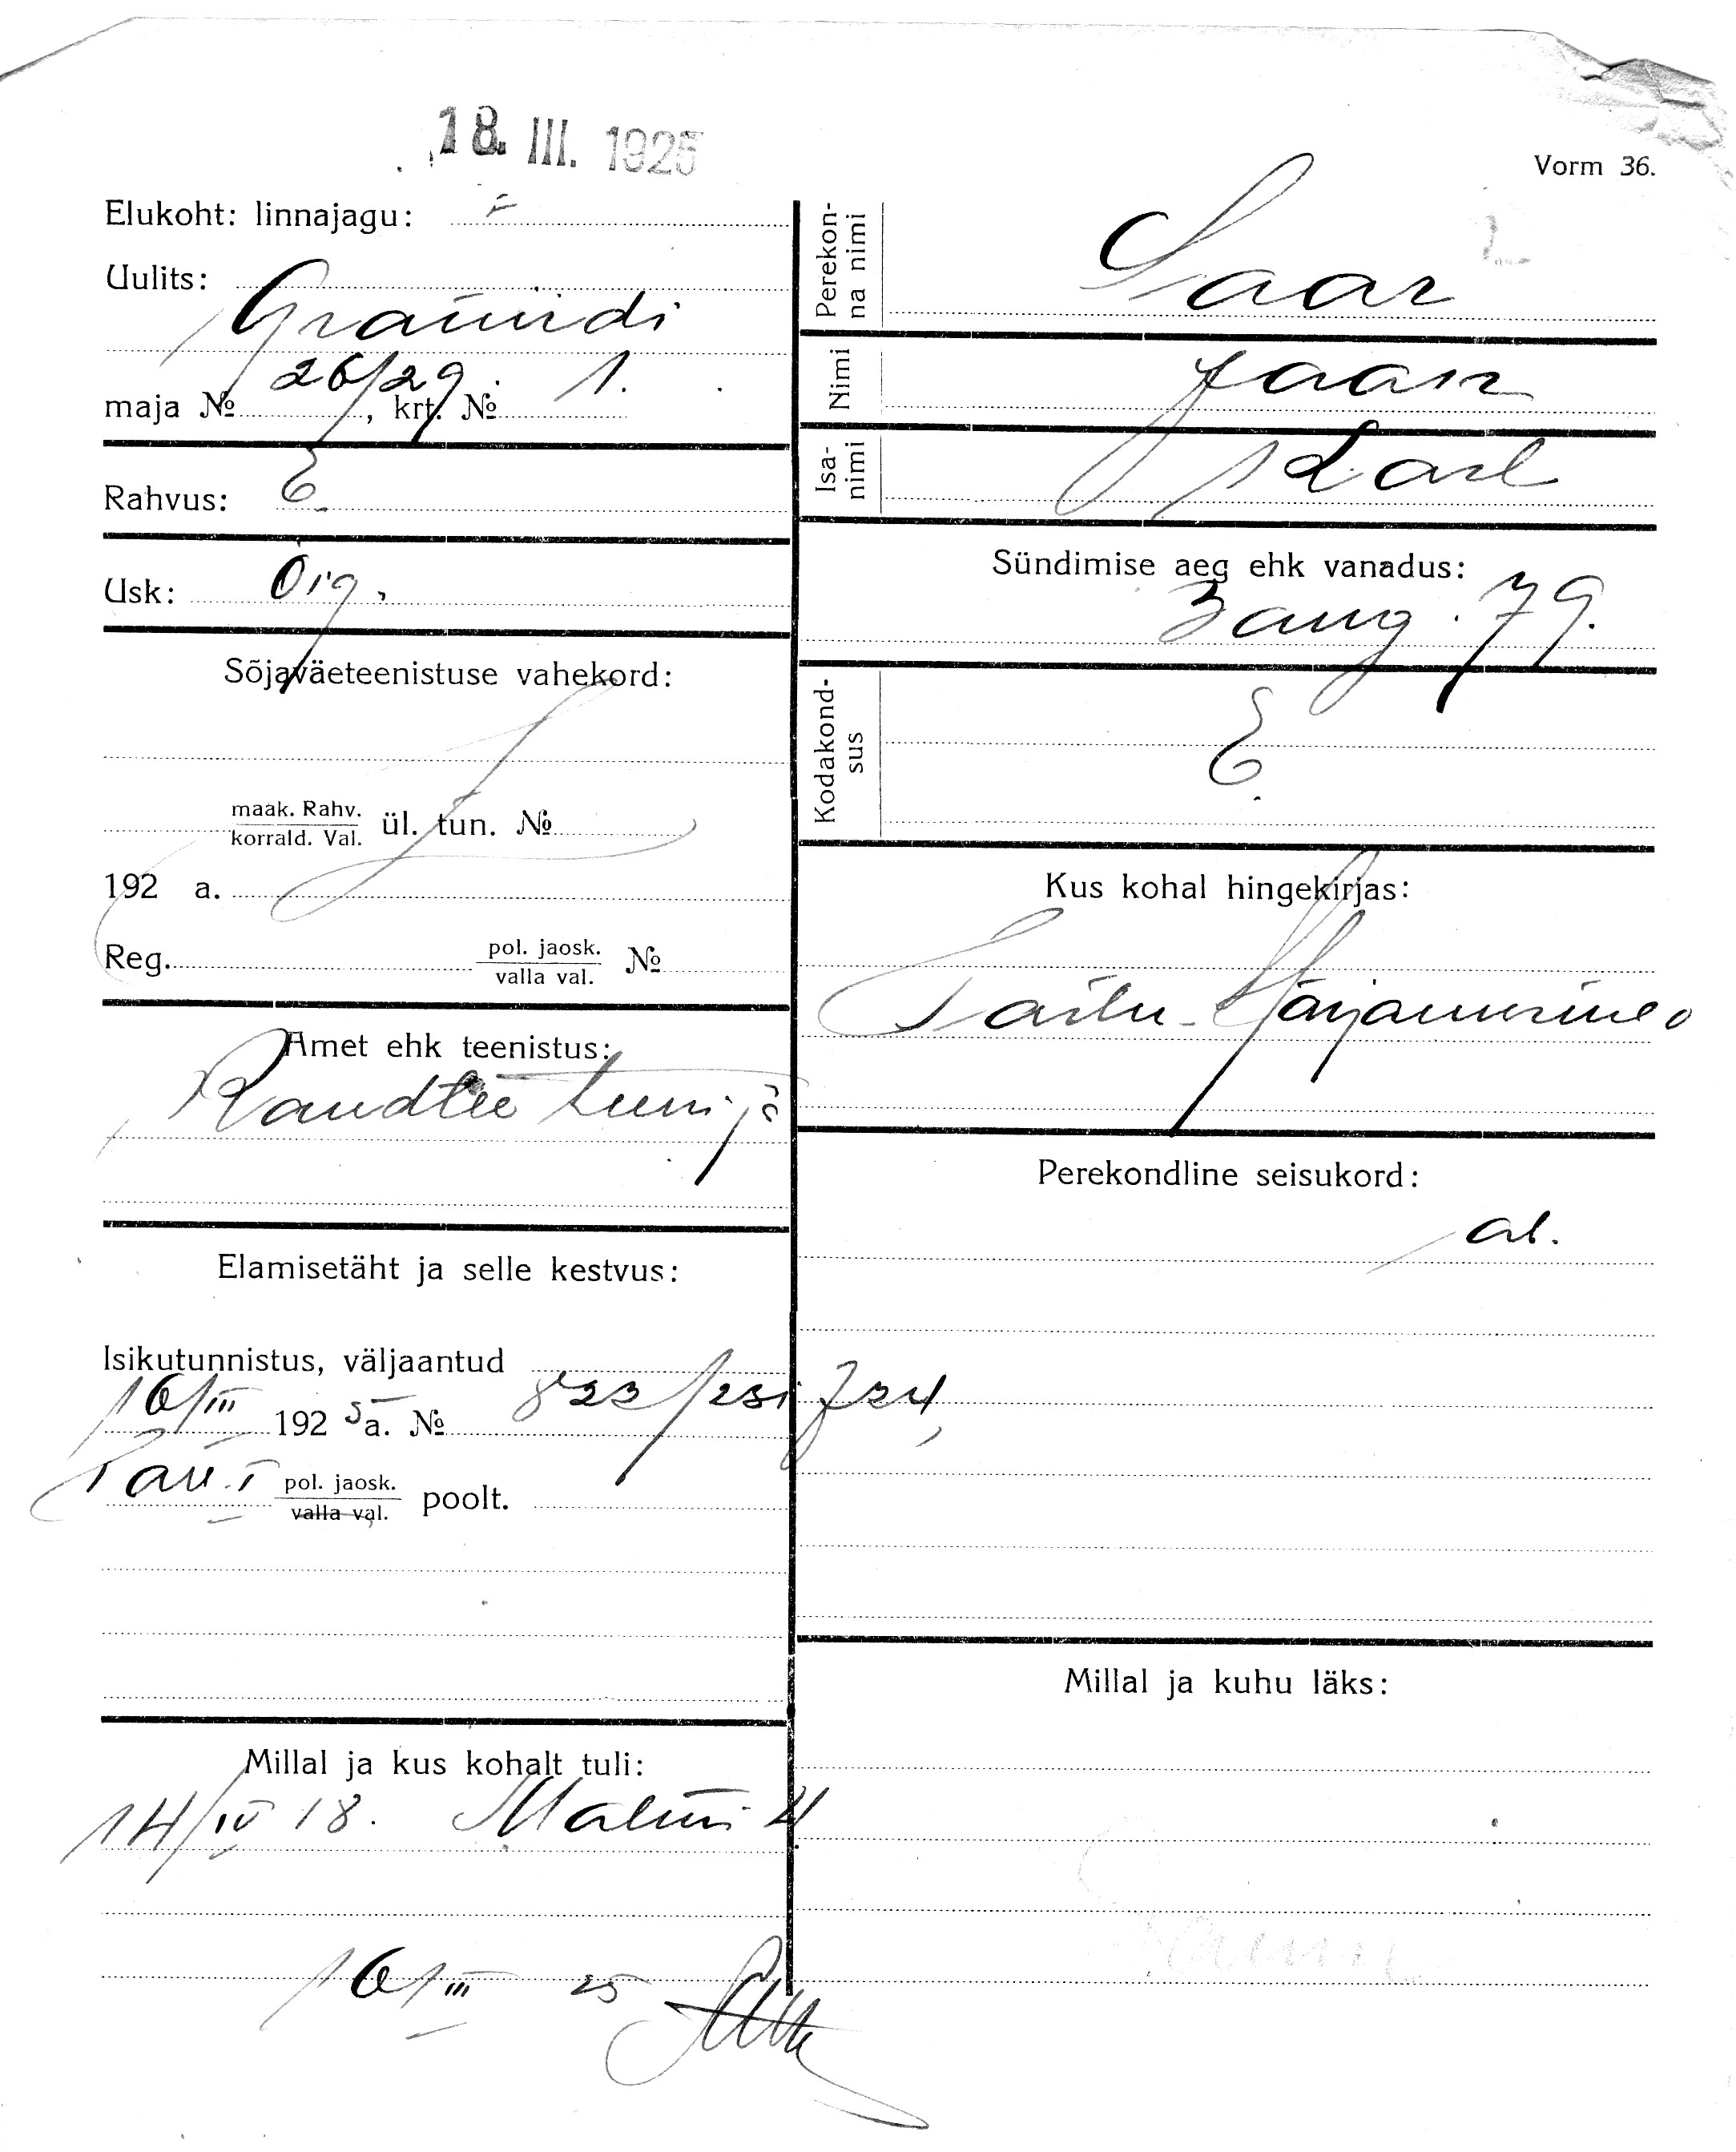 18. III. 1925
Vorm 36.
Elukoht: linnajagu:
Uulits:
maja № 26/29. , krt. № 1.
Rahvus: E.
Usk: Õig.
Sõjaväeteenistuse vahekord:
maak. Rahv.
korrald. Val. ül. tun. №
192 a.
Reg. pol. jaosk. №
valla val.
Amet ehk teenistus:
Raudtee teenija
Elamisetäht ja selle kestvus:
Isikutunnistus, väljaantud
16/III 1925 a. № 822/231
pol. jaosk.
valla val. poolt.
Millal ja kus kohalt tuli:
14/IV 18.
16/III 25
Perekon-
na nimi Saar
Nimi Jaan
Isa-
nimi Karl
Sündimise aeg ehk vanadus:
3 aug. 79.
Kodakond-
sus E.
Kus kohal hingekirjas:
Perekondline seisukord:
ab.
Millal ja kuhu läks: